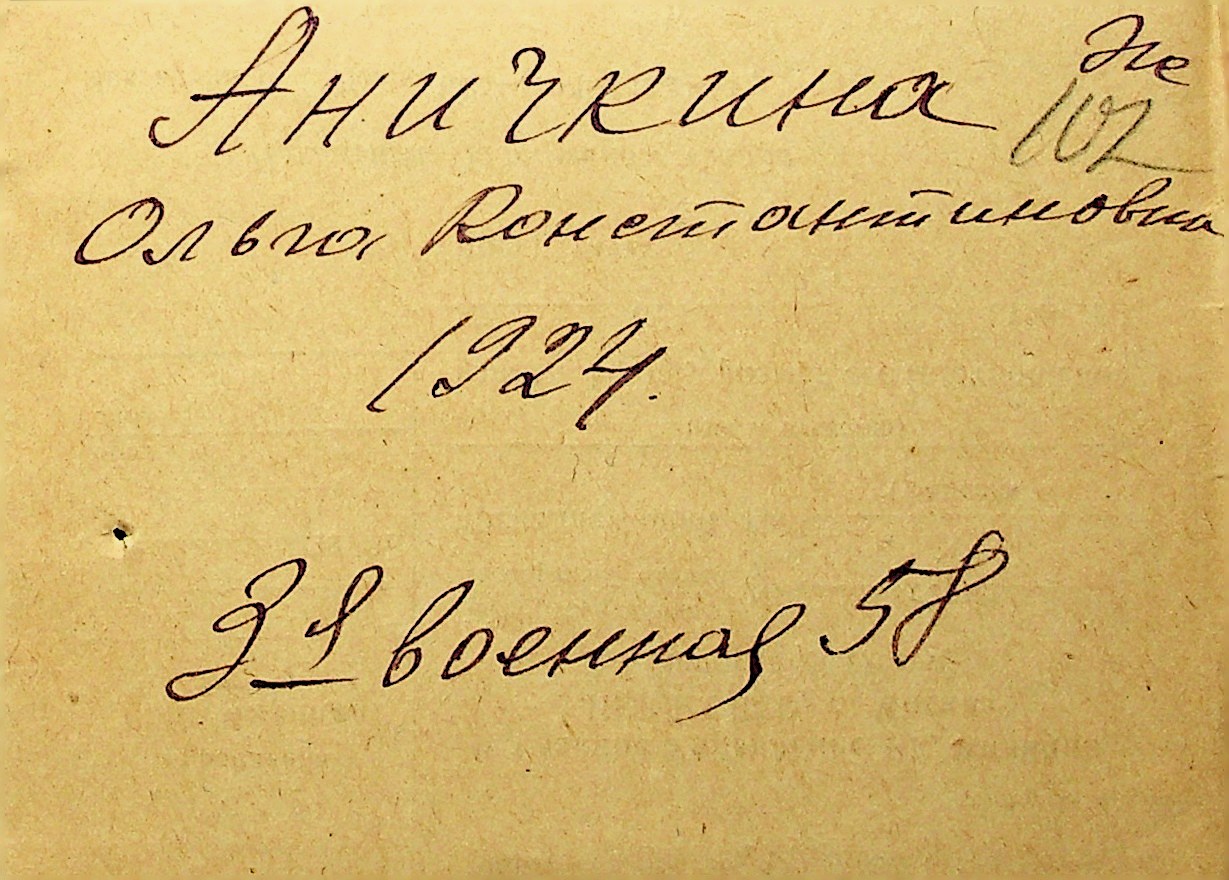 Аничкина
102
Ольга Константиновна
1924.
3я военная 58